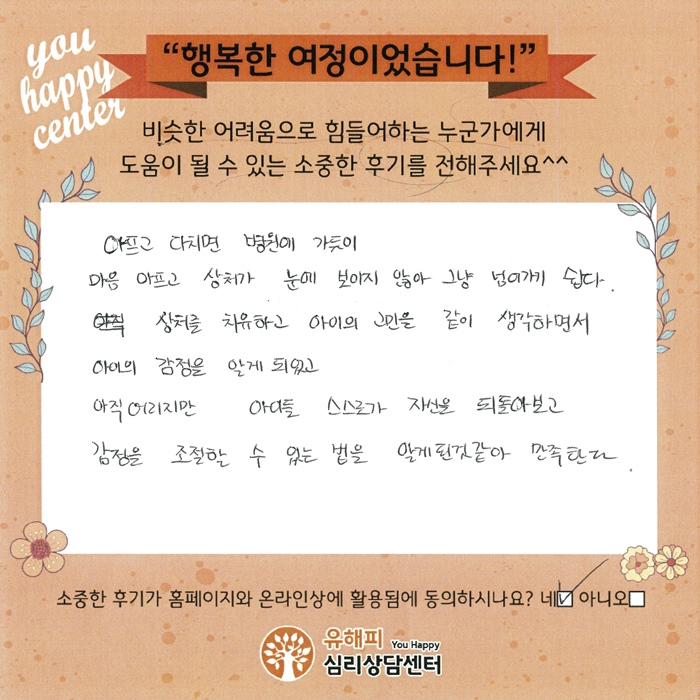 you
happy
center
“행복한 여정이었습니다!”
비슷한 어려움으로 힘들어하는 누군가에게
도움이 될 수 있는 소중한 후기를 전해주세요^^
아프고 다치면 병원에 가듯이
마음 아프고 상처가 눈에 보이지 않아 그냥 넘어가기 쉽다.
상처를 치유하고 아이의 고민을 같이 생각하면서
아이의 감정을 알게 되었고
아직 어리지만 아이들 스스로가 자신을 되돌아보고
감정을 조절할 수 있는 법을 알게된것같아 만족한다.
소중한 후기가 홈페이지와 온라인상에 활용됨에 동의하시나요? 네☑ 아니오☐
유해피 You Happy
심리상담센터